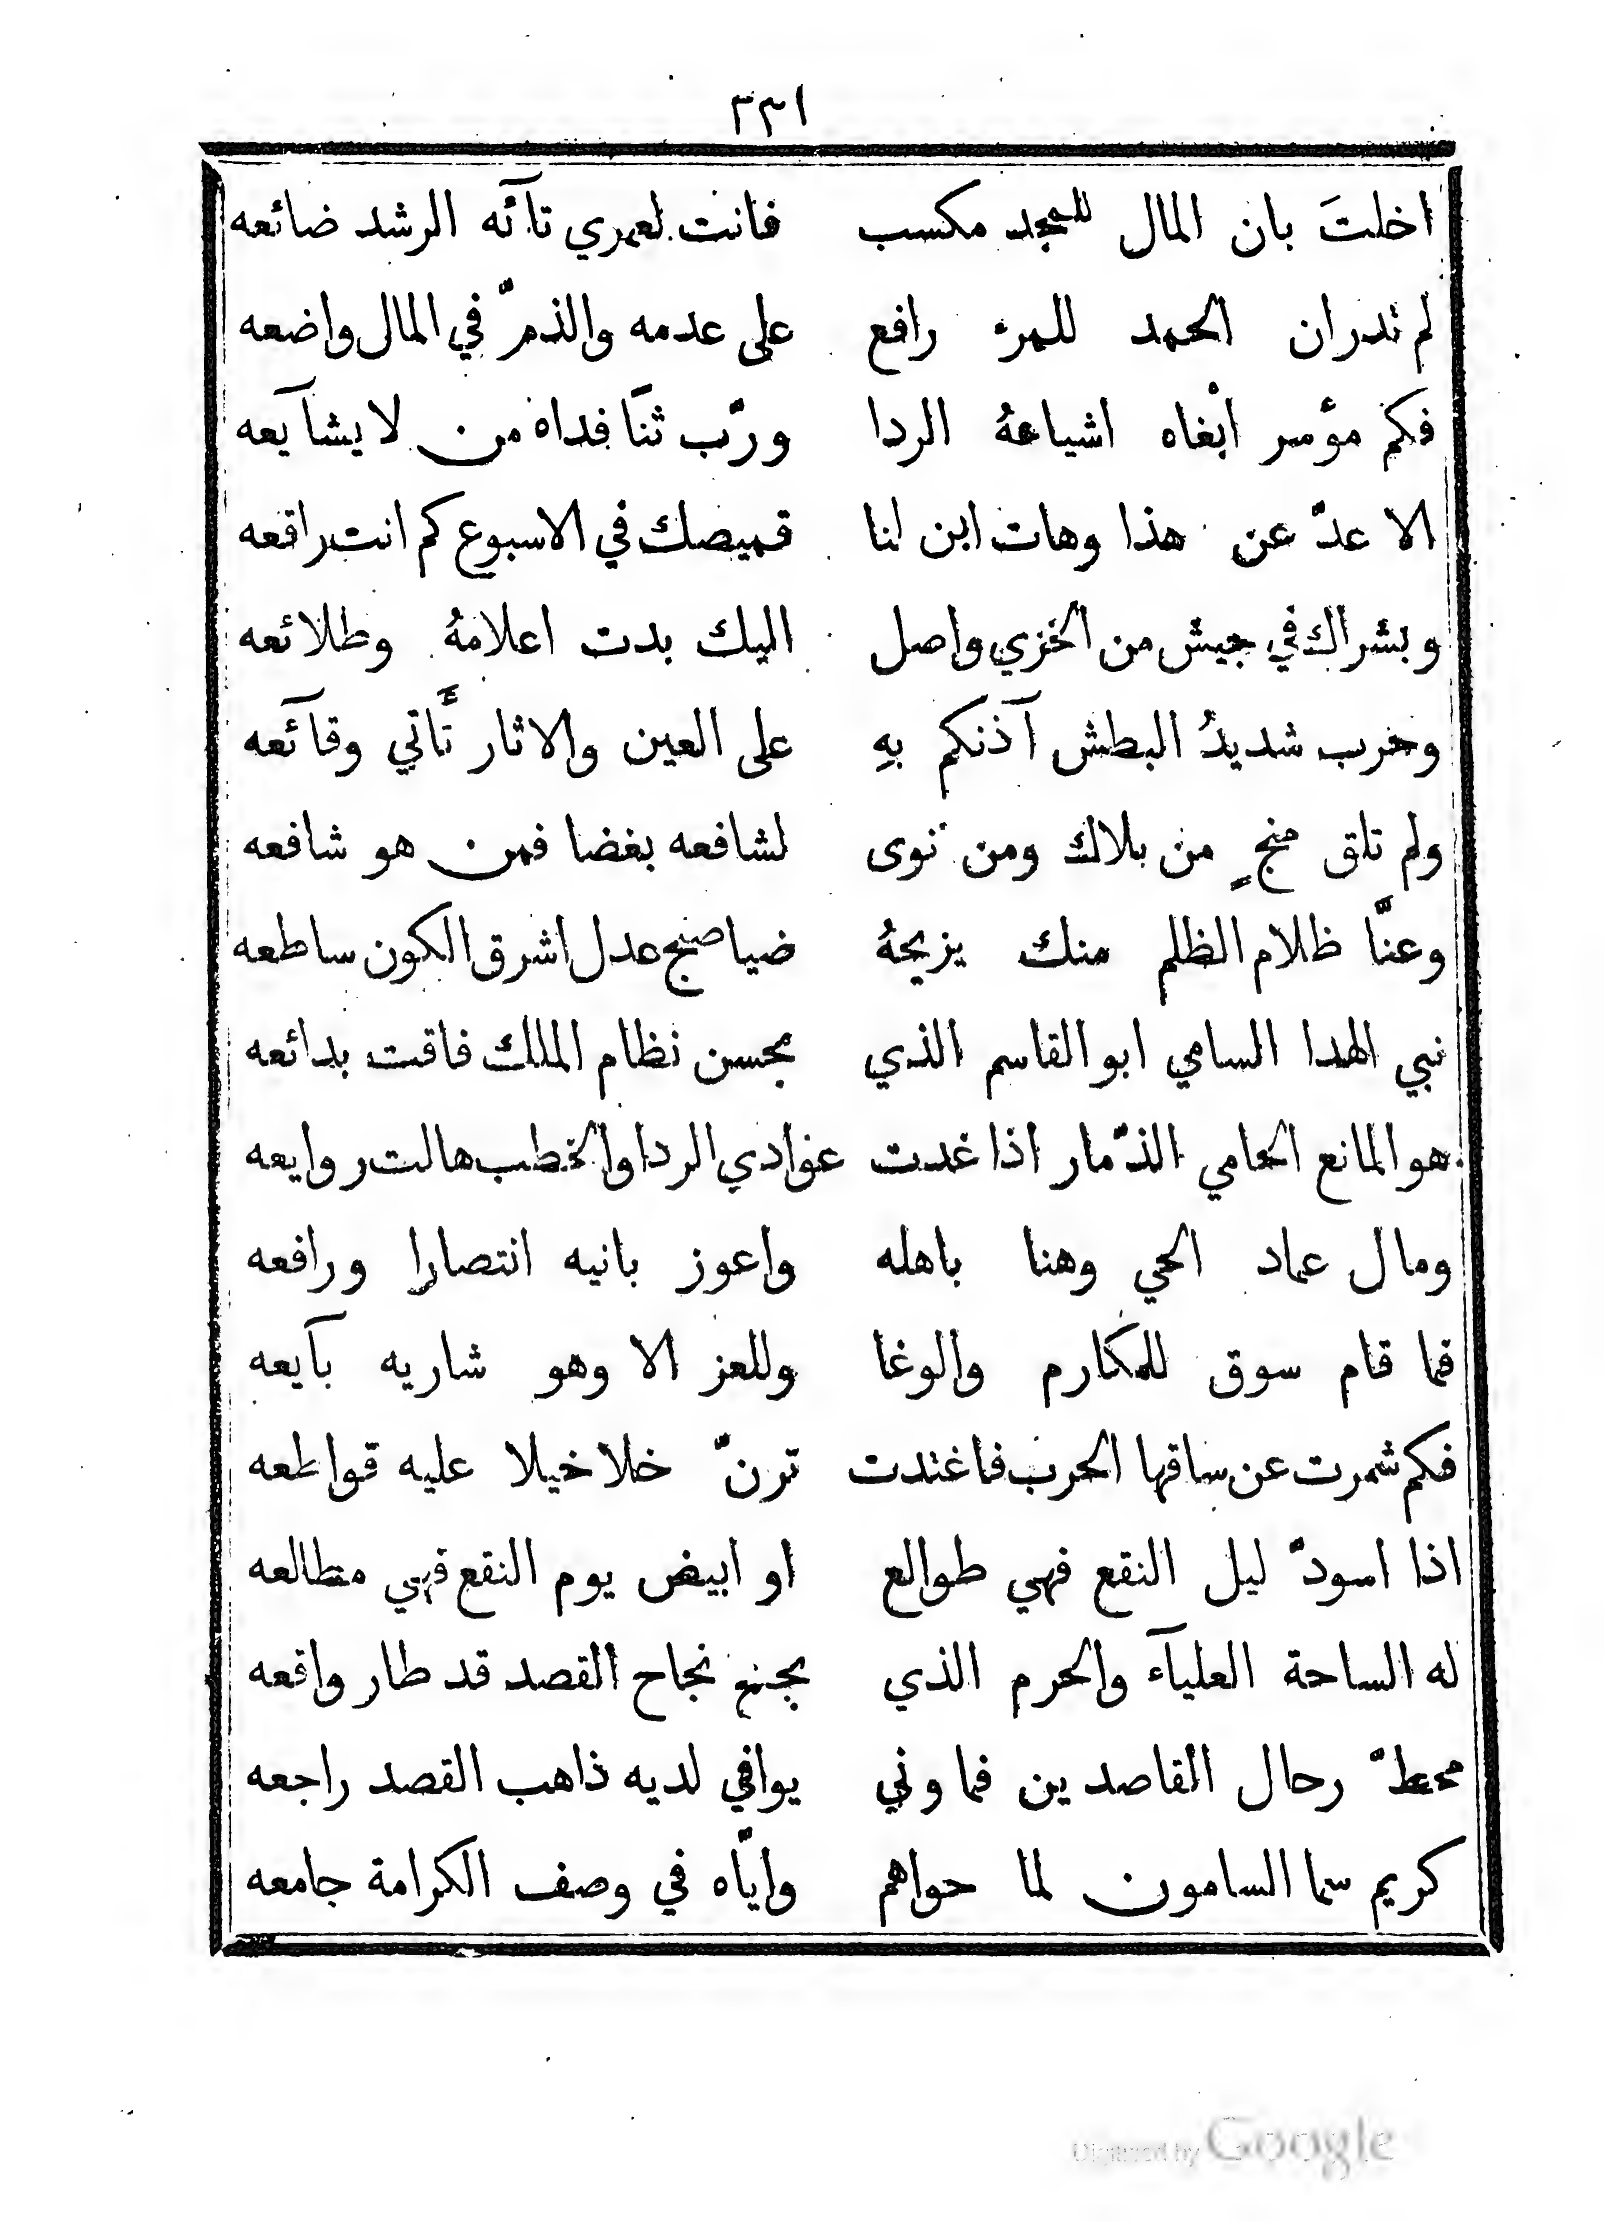 ٣٣١
اخلتَ بان المال للمجد مكسب فانت لعمري تآئه الرشد ضائعه
لم تدر ان الحمد للمرء رافع على عدمه والذمّ في المال واضعه
فكم مؤسر ابْغاه اشياعهُ الردا وربّ ثنًا فداه من لا يشآيعه
الا عدّ عن هذا وهات ابن لنا قميصك في الاسبوع كم انت راقعه
وبشراك في جيش من الخزي واصل اليك بدت اعلامهُ وطلائعه
وحرب شديدُ البطش آذنكم بهِ على العين والاثار تأتي وقآئعه
ولم تلق منجٍ من بلاك ومن نوى لشافعه بغضا فمن هو شافعه
وعنّا ظلام الظلم منك يزيحهُ ضيا صبح عدل اشرق الكون ساطعه
نبي الهدا السامي ابو القاسم الذي بحسن نظام الملك فاقت بدائعه
هو المانع الحامي الذّمار اذا غدت عوادي الردا والخطب هالت روايعه
ومال عماد الحي وهنا باهله واعوز بانيه انتصارا ورافعه
فما قام سوق للمكارم والوغا وللعز الا وهو شاريه بآيعه
فكم شمرت عن ساقها الحرب فاغتدت ترنّ خلاخيلا عليه قواطعه
اذا اسودّ ليل النقع فهي طوالع او ابيض يوم النقع فهي مطالعه
له الساحة العليآء والحرم الذي بجنح نجاح القصد قد طار واقعه
محطّ رحال القاصدين فما وني يوافي لديه ذاهب القصد راجعه
كريم سما السامون لما حواهم وايّاه في وصف الكرامة جامعه
Digitized by Google